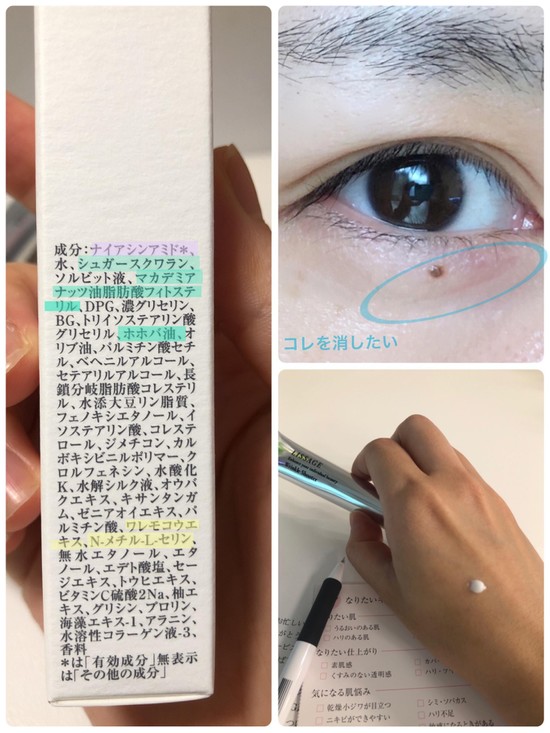 成分:ナイアシンアミド*、
水、シュガースクワラン、
ソルビット液、マカデミア
ナッツ油脂肪酸フィトステ
リル、DPG、濃グリセリン、
BG、トリイソステアリン酸
グリセリル、ホホバ油、オ
リブ油、パルミチン酸セチ
ル、ベヘニルアルコール、
セテアリルアルコール、長
鎖分岐脂肪酸コレステリ
ル、水添大豆リン脂質、
フェノキシエタノール、イ
ソステアリン酸、コレステ
ロール、ジメチコン、カル
ボキシビニルポリマー、ク
ロルフェネシン、水酸化
K、水解シルク液、オウバ
クエキス、キサンタンガ
ム、ゼニアオイエキス、パ
ルミチン酸、ワレモコウエ
キス、N-メチル-L-セリン、
無水エタノール、エタ
ノール、エデト酸塩、セー
ジエキス、トウヒエキス、
ビタミンC硫酸2Na、柚エ
キス、グリシン、プロリン、
海藻エキス-1、アラニン、
水溶性コラーゲン液-3、
香料
*は「有効成分」無表示
は「その他の成分」
コレを消したい
なりたい
りたい肌
うるおいのある肌
ハリのある肌
なりたい仕上がり
素肌感
くすみのない透明感
気になる肌悩み
乾燥小ジワが目立つ
ニキビができやすい
シミ・ソバカス
ハリ不足
敏感になるときがある